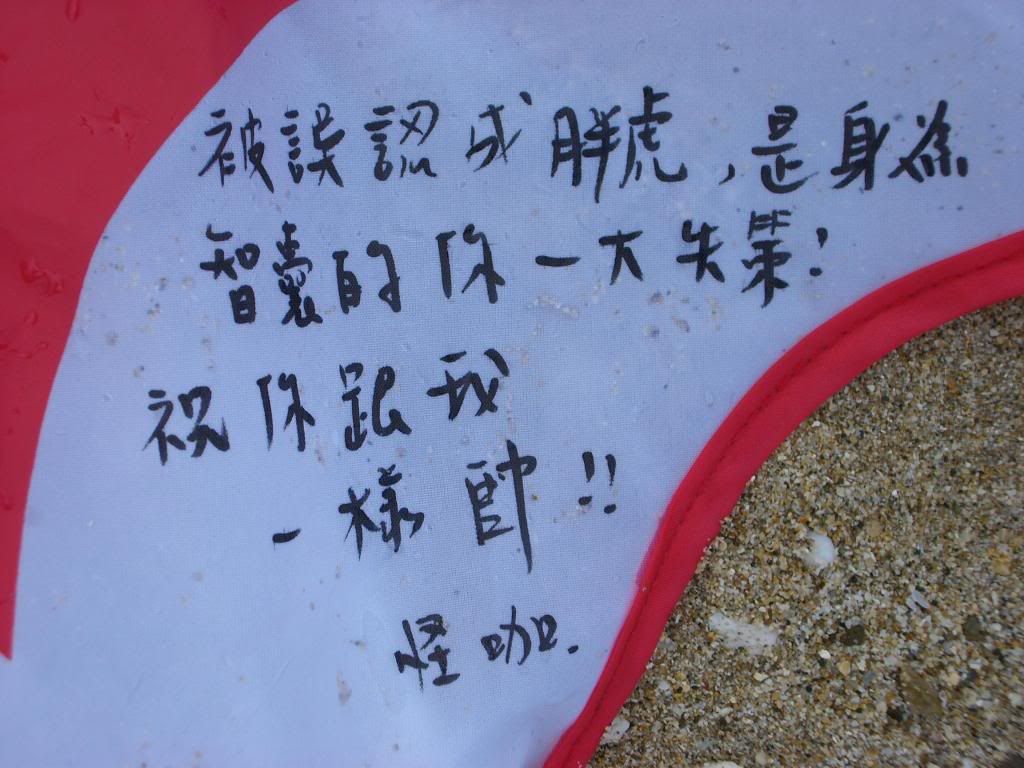 被誤認成胖虎,是身為
智囊的你一大失策!
祝你跟我
一樣帥!!
怪咖.